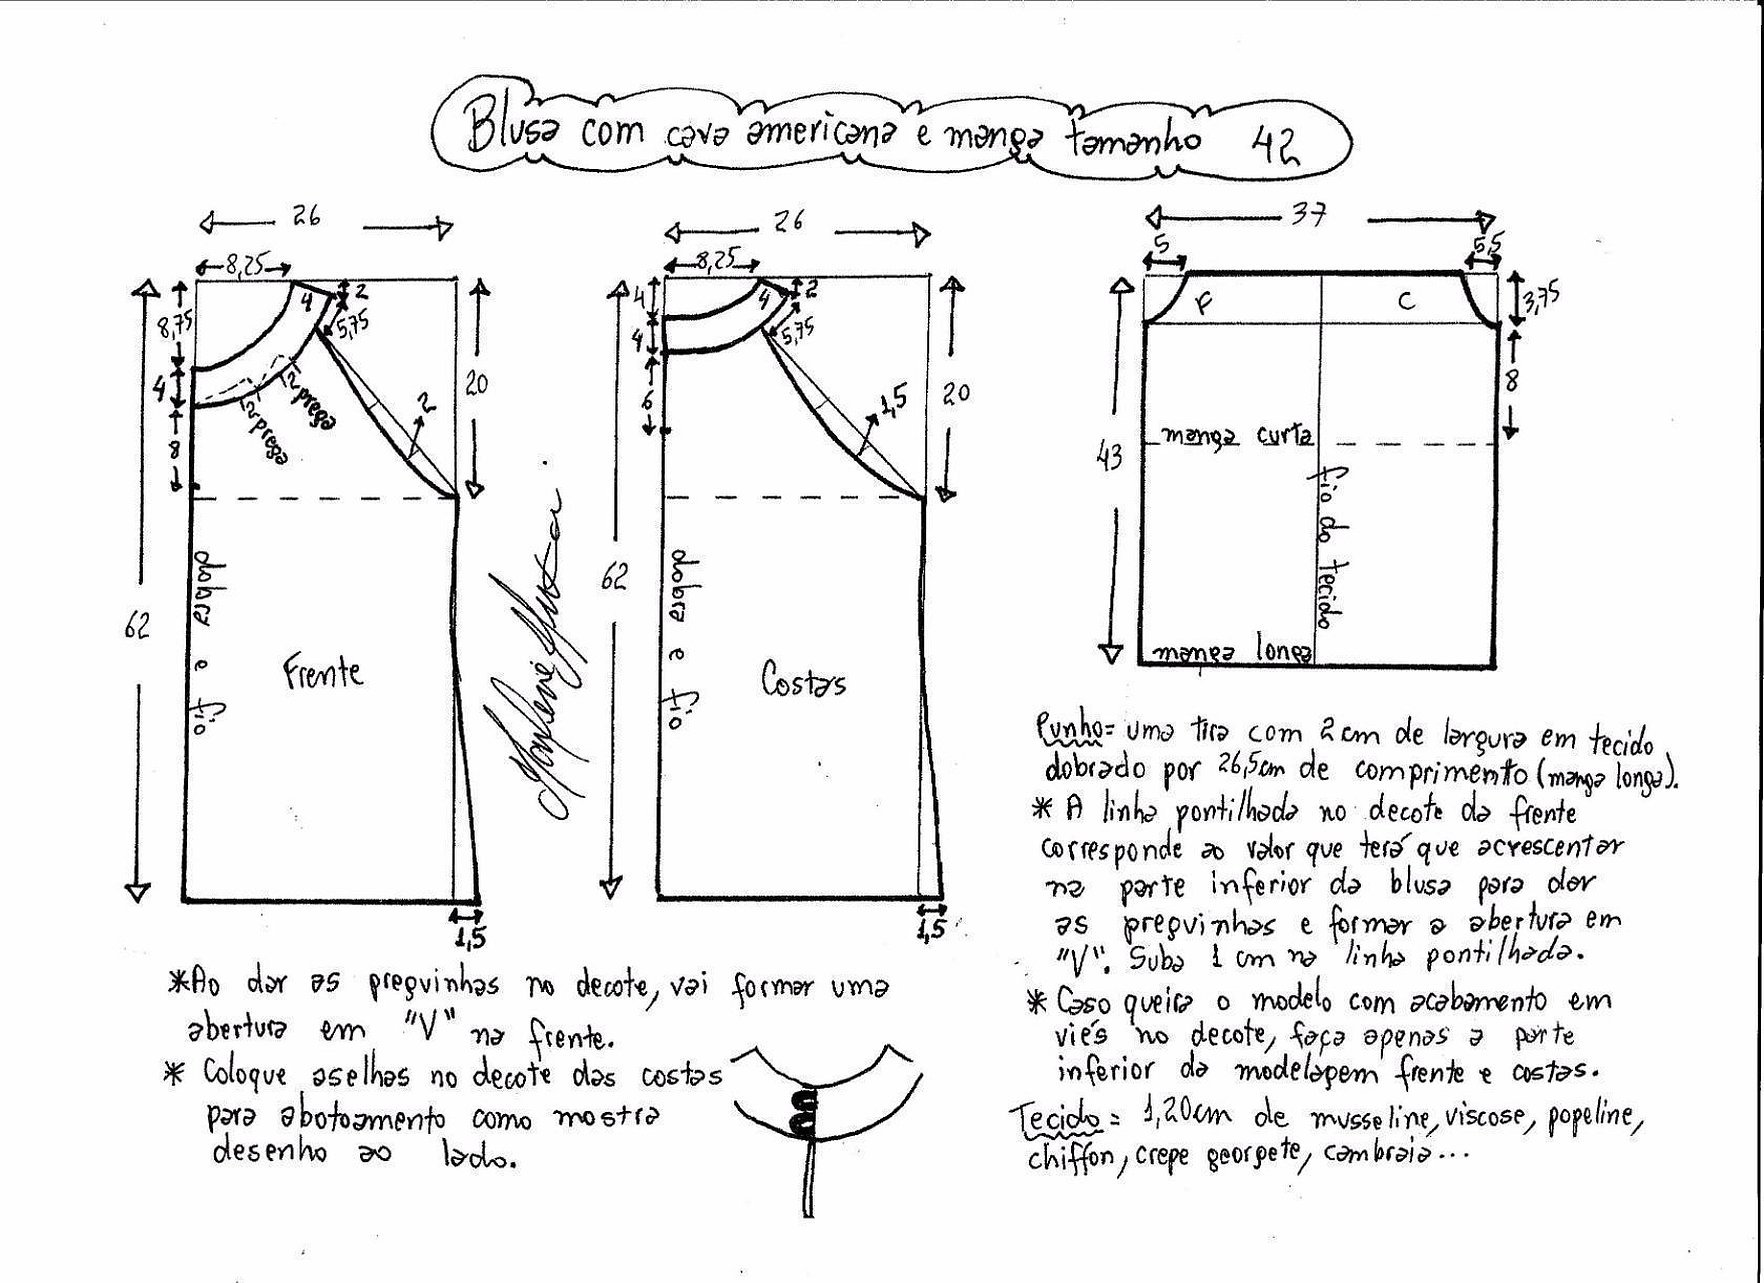 Blusa com cava americana e manga tamanho 42
26
8,25
2
4
5,75
8,75
4
8
20
2
2 prega
2 prega
62
dobra e fio
Frente
1,5
26
8,25
2
4
5,75
4
4
6
20
1,5
62
dobra e fio
Costas
1,5
37
5
5,5
3,75
F
C
8
manga curta
43
fio do tecido
manga longa
*Ao dar as preguinhas no decote, vai formar uma
abertura em "V" na frente.
* Coloque aselhas no decote das costas
para abotoamento como mostra
desenho ao lado.
Punho= uma tira com 2cm de largura em tecido
dobrado por 26,5cm de comprimento (manga longa).
* A linha pontilhada no decote da frente
corresponde ao valor que terá que acrescentar
na parte inferior da blusa para dar
as preguinhas e formar a abertura em
"V". Suba 1 cm na linha pontilhada.
* Caso queira o modelo com acabamento em
viés no decote, faça apenas a parte
inferior da modelagem frente e costas.
Tecido = 1,20cm de musseline, viscose, popeline,
chiffon, crepe georgete, cambraia...